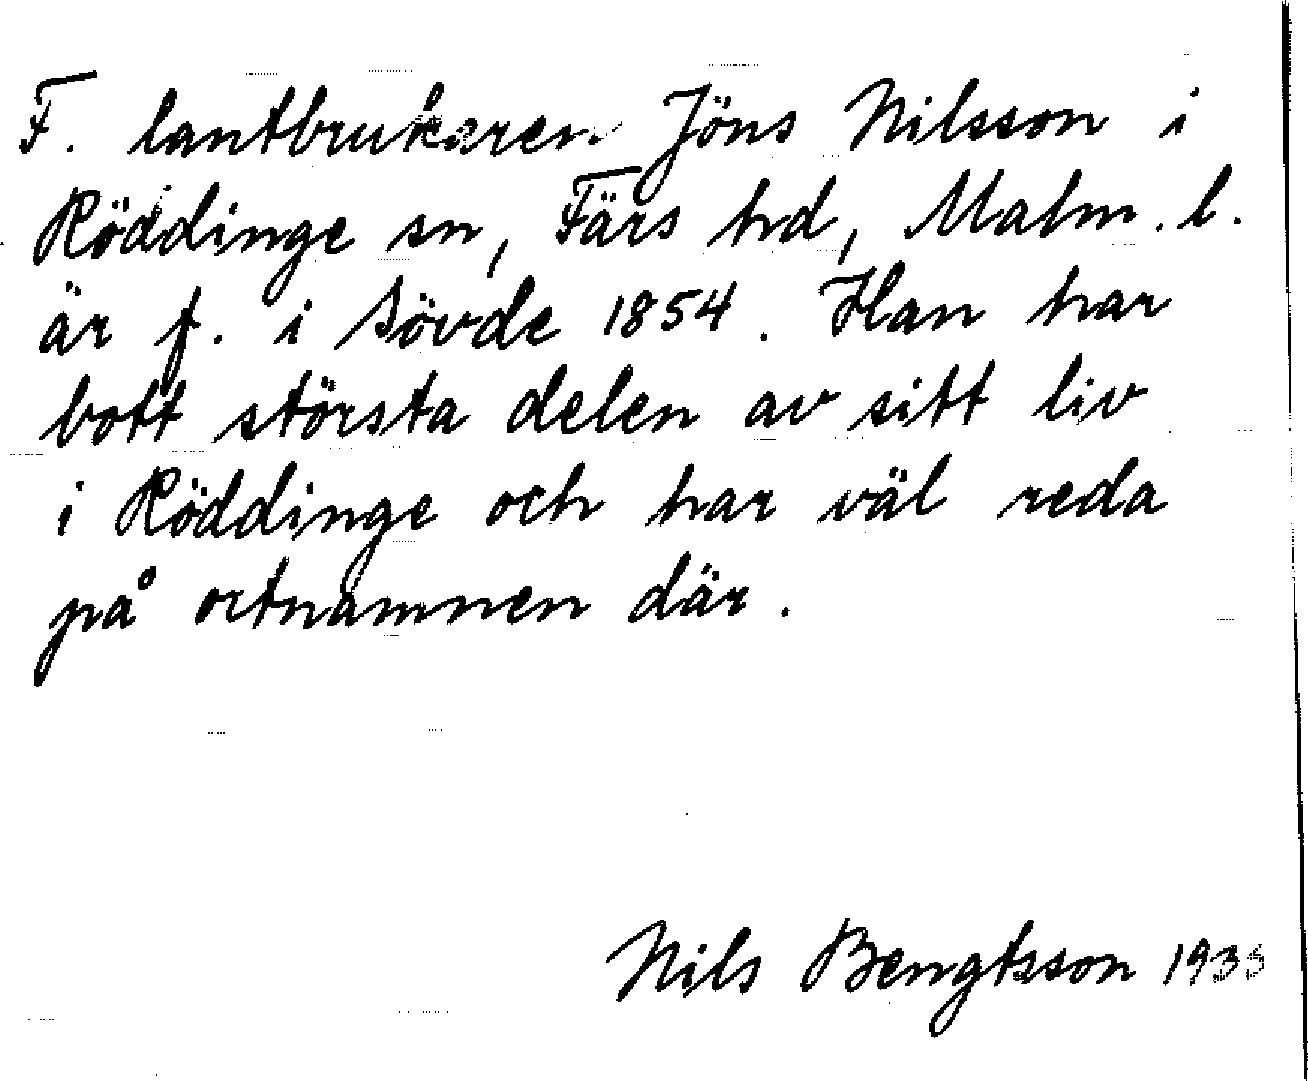 F. lantbrukaren Jöns Nilsson i
Röddinge sn, Färs hd, Malm. l.
är f. i Sövde 1854. Han har
bott största delen av sitt liv
i Röddinge och har väl reda
på ortnamnen där.
Nils Bengtsson 1933